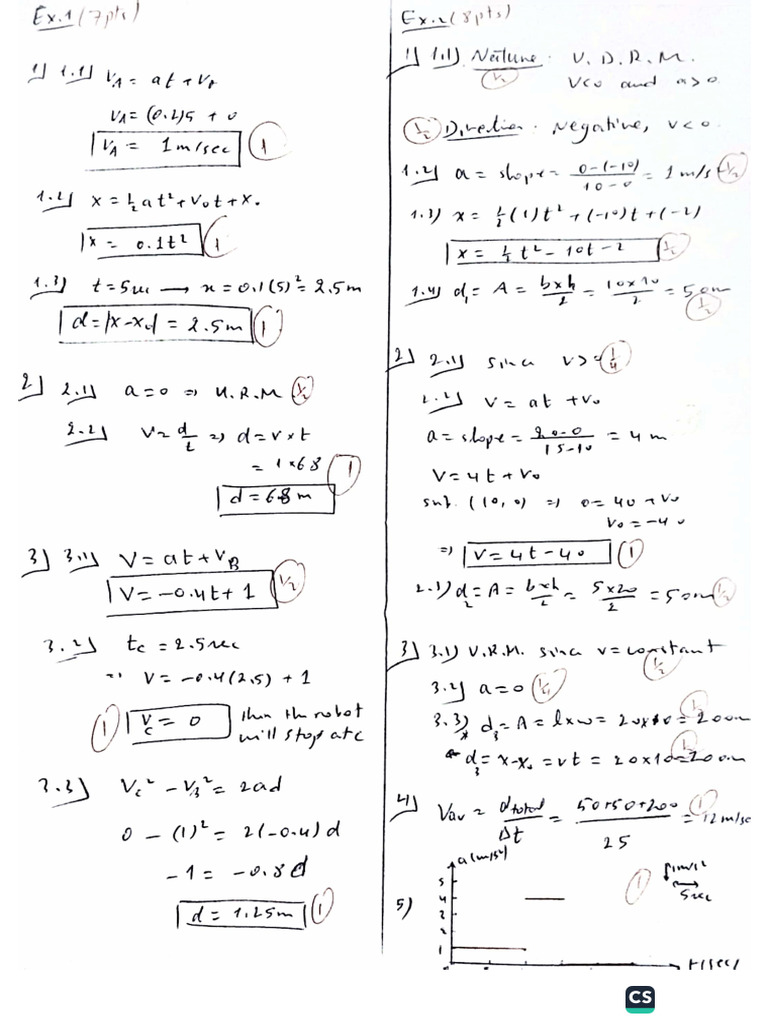 Ex.1 (7pts)
1) 1.1) V_A = at + V_0
V_A = (0.2)5 + 0
V_A = 1 m/sec (1)
1.2) x = ½at² + V_0t + x_0
x = 0.1t² (1)
1.3) t = 5sec → x = 0.1(5)² = 2.5m
d = |x - x_0| = 2.5m (1)
2) 2.1) a = 0 ⇒ U.R.M (½)
2.2) V = d/t ⇒ d = v × t
= 1 × 68 (1)
d = 68 m
3) 3.1) V = at + V_B
V = -0.4t + 1 (½)
3.2) t_C = 2.5sec
V = -0.4(2.5) + 1
(1) V_C = 0 then the robot
will stop at C
3.3) V_C² - V_B² = 2ad
0 - (1)² = 2(-0.4)d
-1 = -0.8d
d = 1.25m (1)
Ex.2 (8pts)
1) 1.1) Nature: U.D.R.M.
(½) V<0 and a>0
(½) Direction: Negative, v<0.
1.2) a = slope = 0-(-10)/10-0 = 1 m/s² (½)
1.3) x = ½(1)t² + (-10)t + (-2)
x = ½t² - 10t - 2 (½)
1.4) d_1 = A = b×h/2 = 10×10/2 = 50m
(½)
2) 2.1) since v> (¼)
2.2) V = at + V_0
a = slope = 20-0/15-10 = 4 m
V = 4t + V_0
sub. (10, 0) ⇒ 0 = 40 + V_0
V_0 = -40
⇒ V = 4t - 40 (1)
2.3) d_2 = A = b×h/2 = 5×20/2 = 50m (½)
3) 3.1) U.R.M. since v = constant
(½)
3.2) a = 0 (¼)
3.3) * d_3 = A = l×w = 20×10 = 200m (½)
* d_3 = x-x_0 = vt = 20×10 = 200m (½)
4) V_av = d_total/Δt = 50+50+200/25 = 12 m/sec (1)
5) a(m/s²)
5
4
3
2
1
(1)
1m/s²
5sec
t(sec)
CS